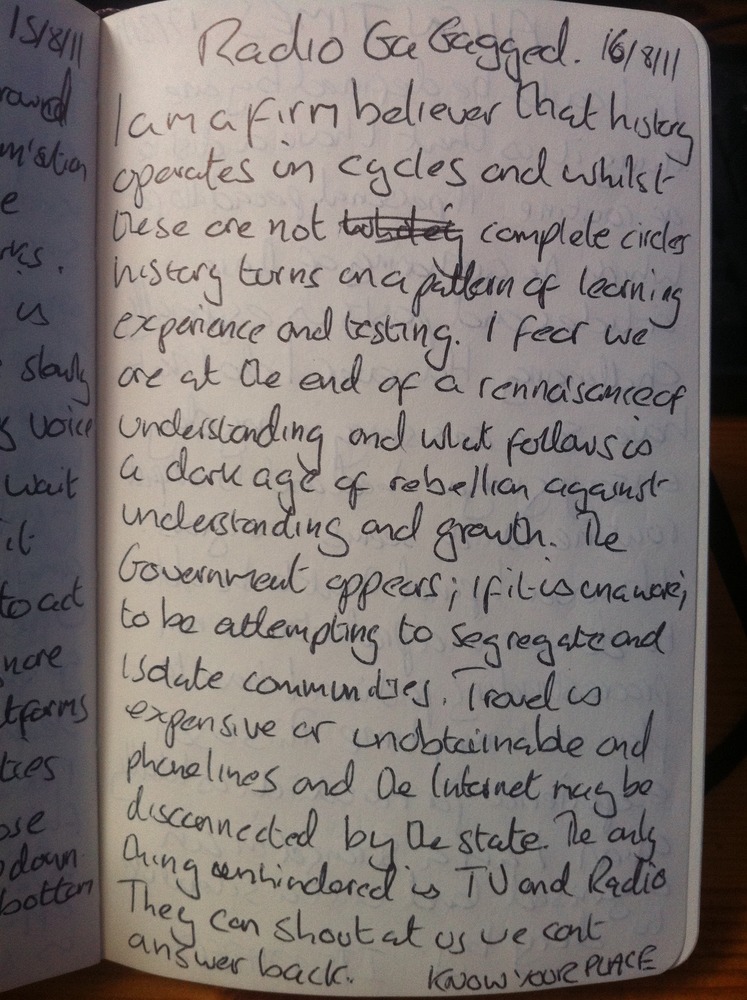 15/8/11
rowed
e
is
slowly
s voice
wait
it
to act
more
tforms
ties
ose
down
bottom
Radio Ga Gagged. 16/8/11
I am a firm believer that history
operates in cycles and whilst
these are not complete circles
history turns on a pattern of learning
experience and testing. I fear we
are at the end of a rennaisance of
understanding and what follows is
a dark age of rebellion against
understanding and growth. The
Government appears; if it is unaware;
to be attempting to segregate and
isolate communities. Travel is
expensive or unobtainable and
phonelines and the Internet may be
disconnected by the state. The only
thing unhindered is TV and Radio
They can shout at us we cant
answer back. KNOW YOUR PLACE